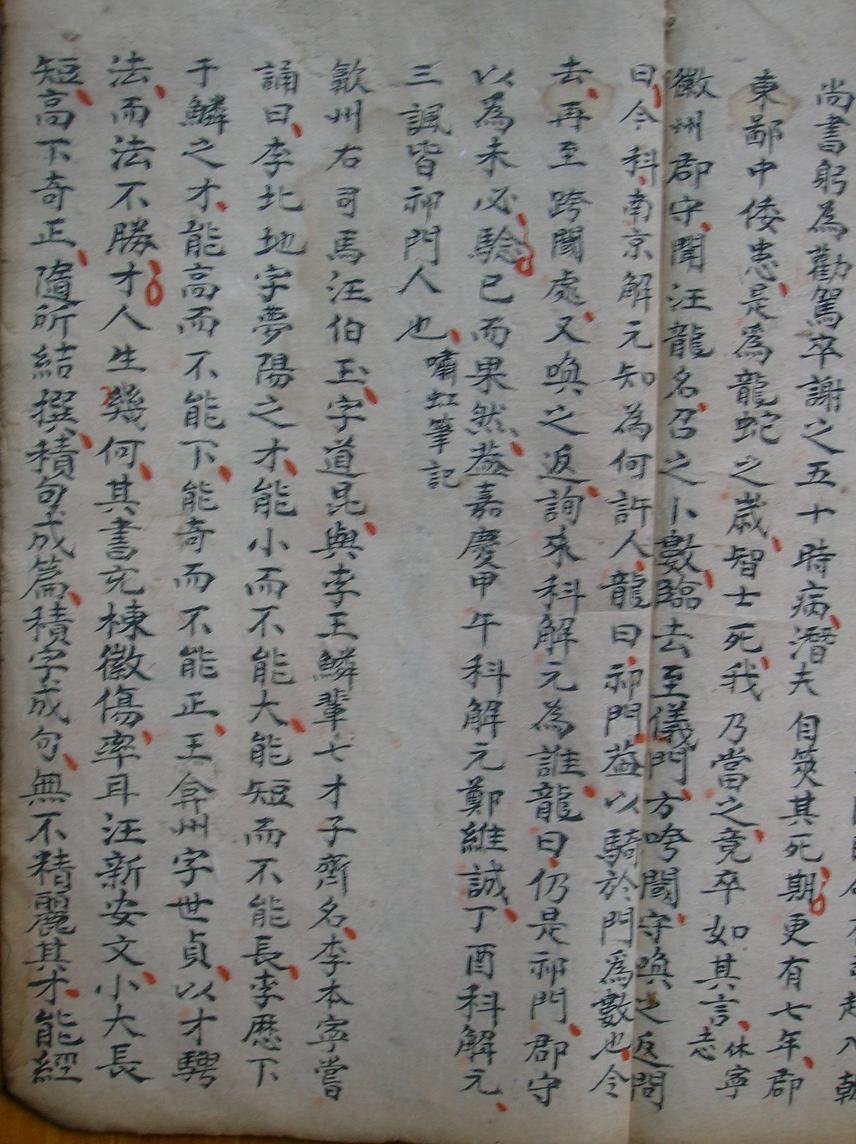 起入朝
尚書躬為勸駕卒謝之五十時病潛夫自筴其死期更有七年郡
東鄙中倭患是為龍蛇之歲智士死我乃當之竟卒如其言休寧志
徽州郡守聞汪龍名召之卜數臨去至儀門方跨閾守喚之返問
曰今科南京解元知為何許人龍曰祁門葢以騎於門為數也今
去再至跨閾處又喚之返詢來科解元為誰龍曰仍是祁門郡守
以為未必驗已而果然葢嘉慶甲午科解元鄭維誠丁酉科解元
三諷皆祁門人也嘯虹筆記
歙州右司馬汪伯玉字道昆與李王鱗輩七才子齊名李本寧嘗
誦曰李北地字夢陽之才能小而不能大能短而不能長李歷下
于鱗之才能高而不能下能奇而不能正王弇州字世貞以才騁
法而法不勝才人生幾何其書充棟徽傷率耳汪新安文小大長
短高下奇正隨所結撰積句成篇積字成句無不精麗其才能經